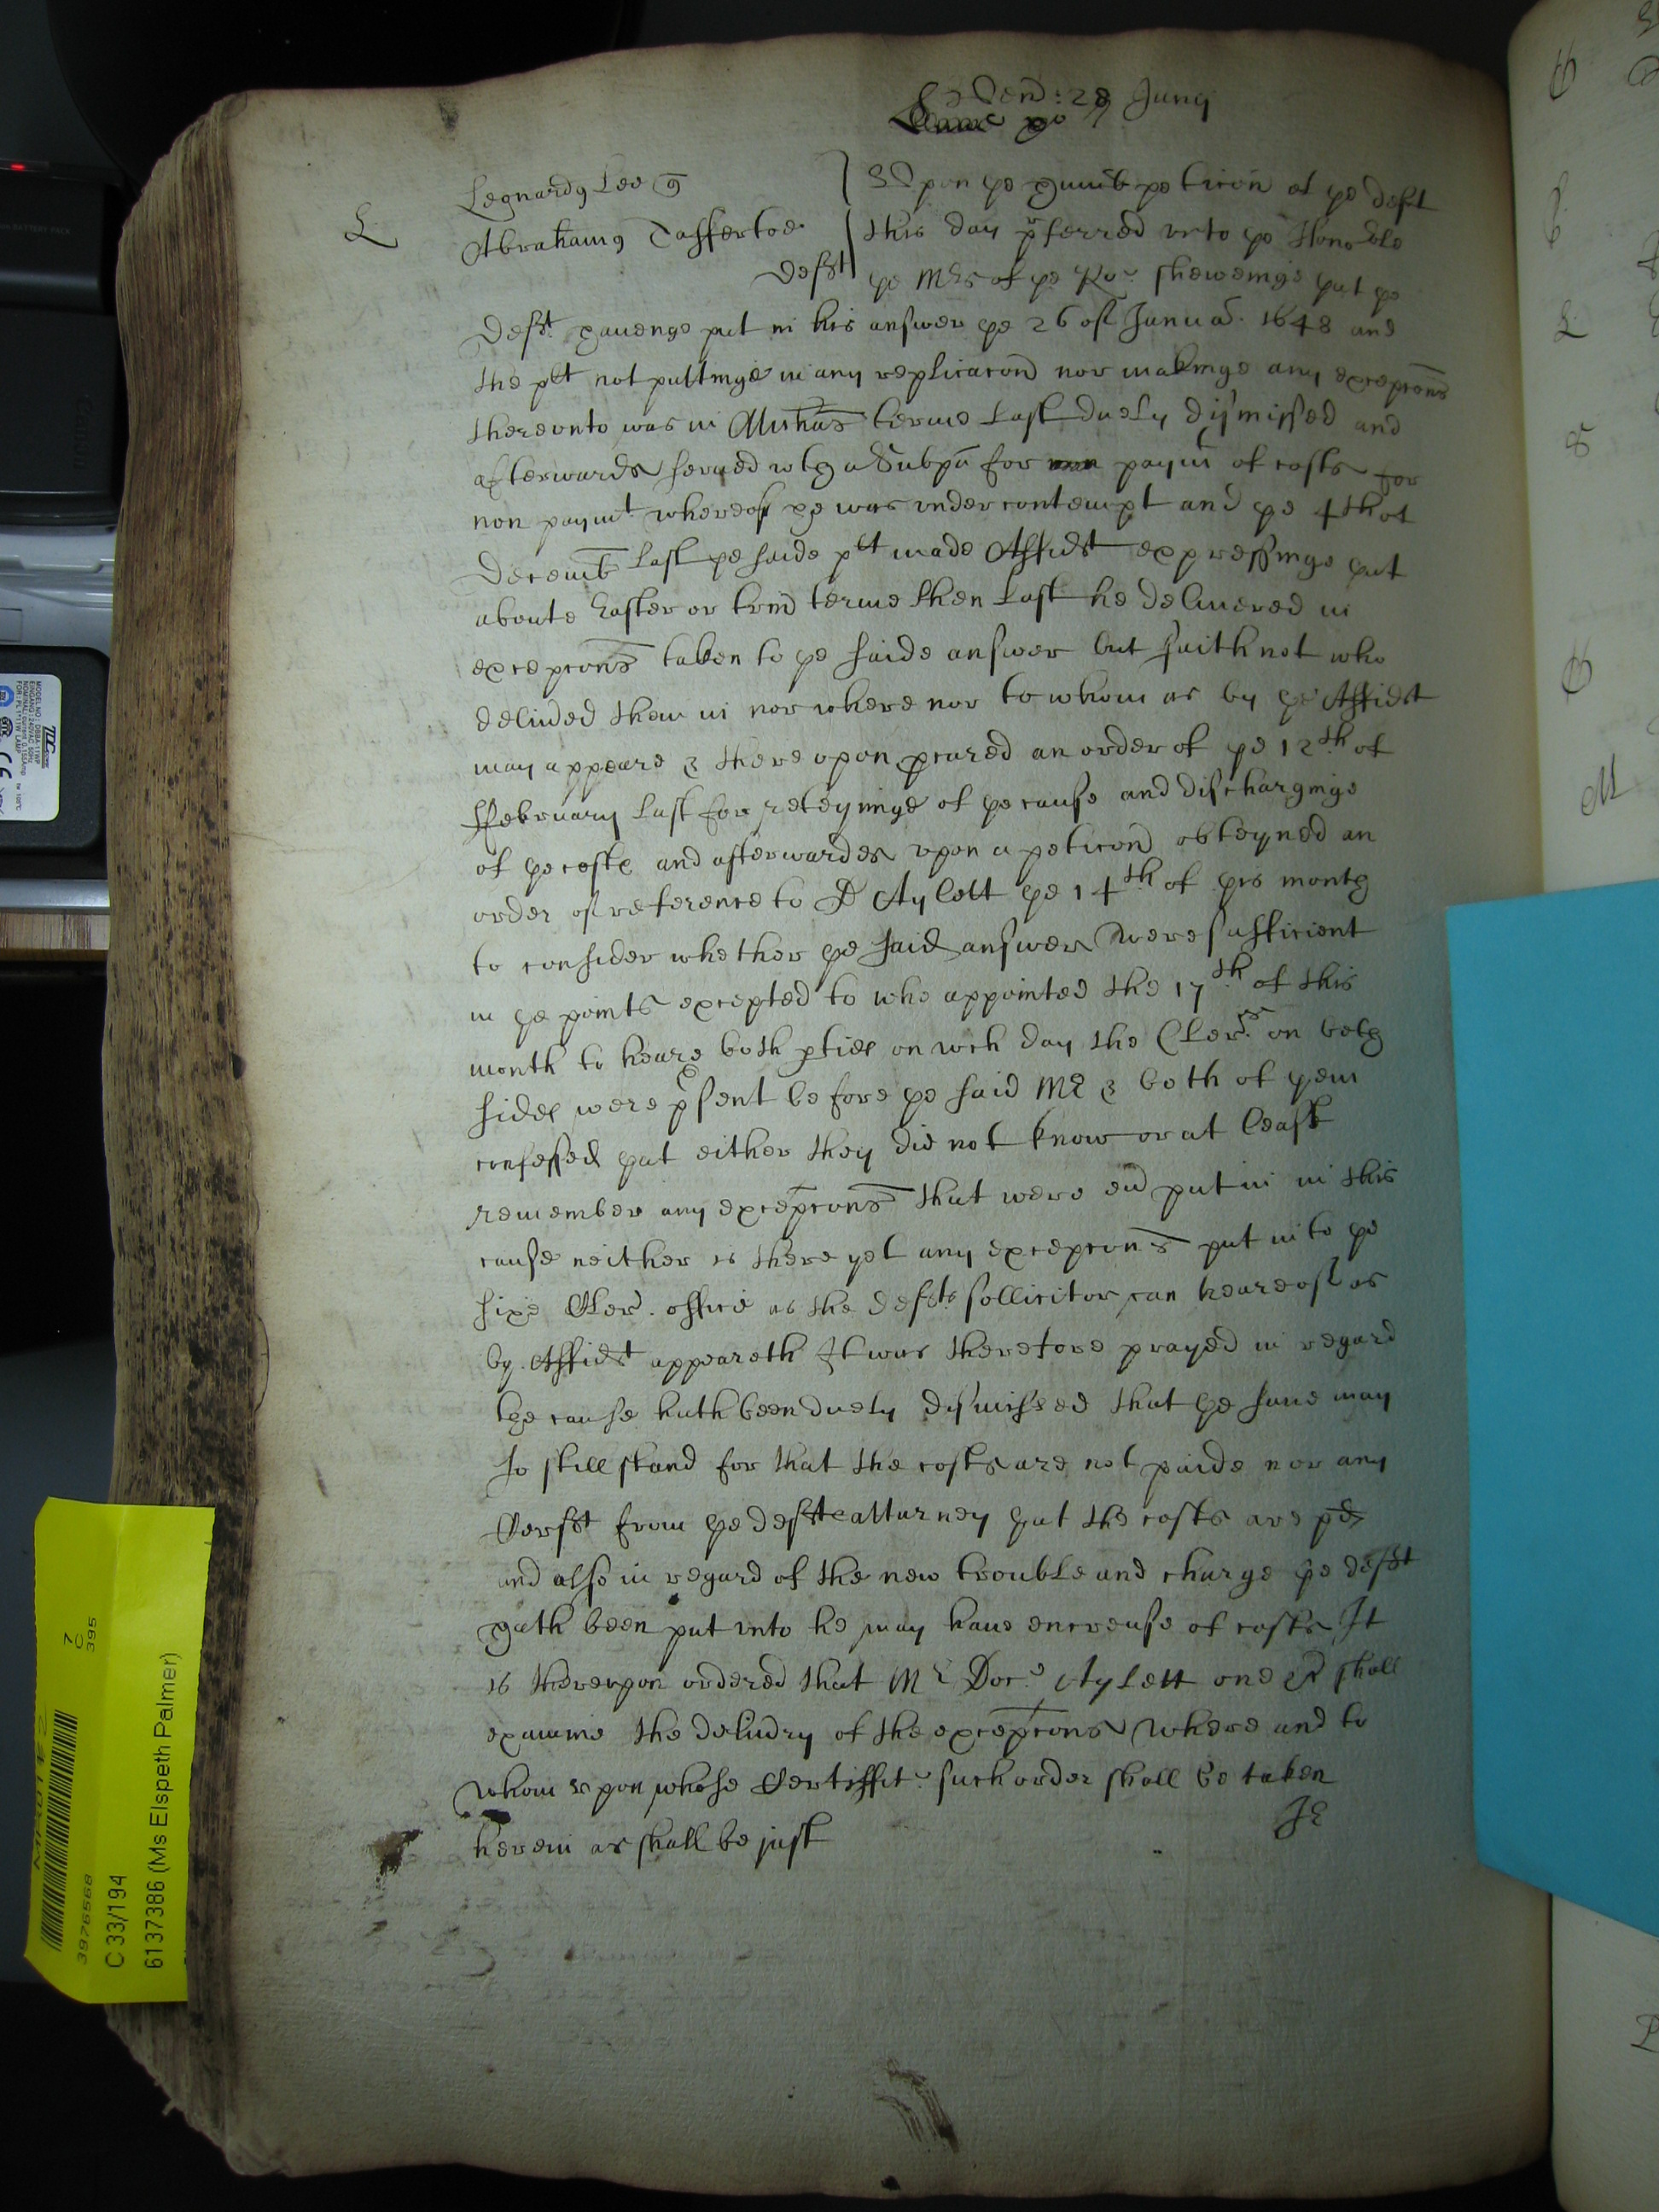 Vend: 28 Junij
L
Leonardus Lee q
Abrahamus Tassertoe
Defdt
Upon ye humb peticon of ye deft
this day pferred vnto ye Honoble
ye Mr of ye Ro: sheweinge yat ye
Defdt haueinge put in his answer ye 26 of Januar. 1648 and
the plt not puttinge in any replicacon nor makinge any excepcons
therevnto was in Michas terme last duely dismissed and
afterwards serued wth a Subpa for paymt of costs for
non paymt whereof he was vnder contempt and ye 4th of
Decemb last ye saide plt made Affidt expressinge yat
aboute Easter or trin terme then last he deliuered in
excepcons taken to ye saide answer but saith not who
deliued them in nor where nor to whom as by ye Affidt
may appeare & there vpon pcured an order of ye 12th of
ffebruary last for reteyninge of ye cause and discharginge
of ye coste and afterwardes vpon a peticon obteyned an
order of reference to Dr Aylett ye 14th of this month
to consider whether ye said answer were sufficient
in ye points excepted to who appointed the 17th of this
month to heare both pties on wch day the Clers. on both
sides were psent before ye said Mr & both of yem
confessed yat either they did not know or at least
remember any excepcons that were eu put in in this
cause neither is there yet any excepcons put into ye
sixe Cler. office as the defdts sollicitor can heare of as
by Affidt appeareth It was therefore prayed in regard
the cause hath been duely dismissed that ye same may
so still stand for that the costs are not paide nor any
Certt from ye defdte atturney yat the costs are pd
and also in regard of the new trouble and charge ye defdt
hath been put vnto he may haue encrease of costs It
is therevpon ordered that Mr Doc: Aylett one &c shall
examine the deliuery of the excepcons where and to
whom vpon whose Certifficit: such order shall be taken
herein as shall be just
JE
C 33/194
6137386 (Ms Elspeth Palmer)
3976568
7
C
395
MODEL NO: D68A-1TWF
EINGANG: 240VAC 50Hz
NOMINAL: current 0.155Amp
FOR: PL (T)11W LAMP
Canon